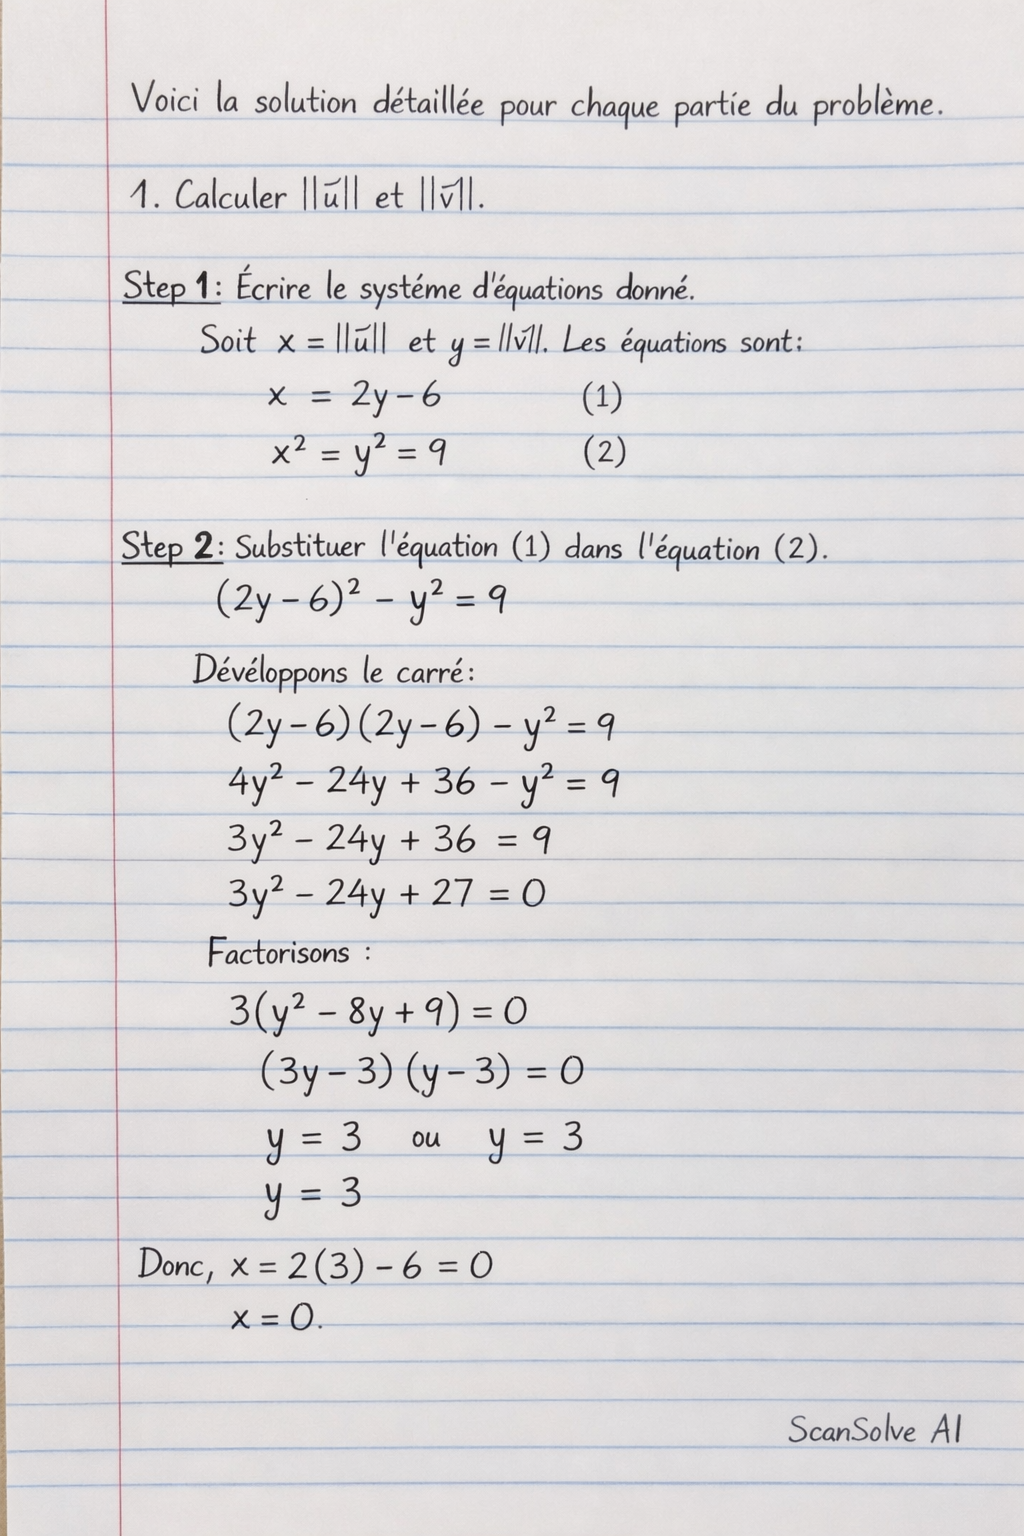 Voici la solution détaillée pour chaque partie du problème.
1. Calculer ||ū|| et ||v̄||.
Step 1: Écrire le systéme d'équations donné.
Soit x = ||ū|| et y = ||v̄||. Les équations sont:
x = 2y - 6 (1)
x² = y² = 9 (2)
Step 2: Substituer l'équation (1) dans l'équation (2).
(2y - 6)² - y² = 9
Dévéloppons le carré:
(2y - 6)(2y - 6) - y² = 9
4y² - 24y + 36 - y² = 9
3y² - 24y + 36 = 9
3y² - 24y + 27 = 0
Factorisons :
3(y² - 8y + 9) = 0
(3y - 3) (y - 3) = 0
y = 3 ou y = 3
y = 3
Donc, x = 2(3) - 6 = 0
x = 0.
ScanSolve AI